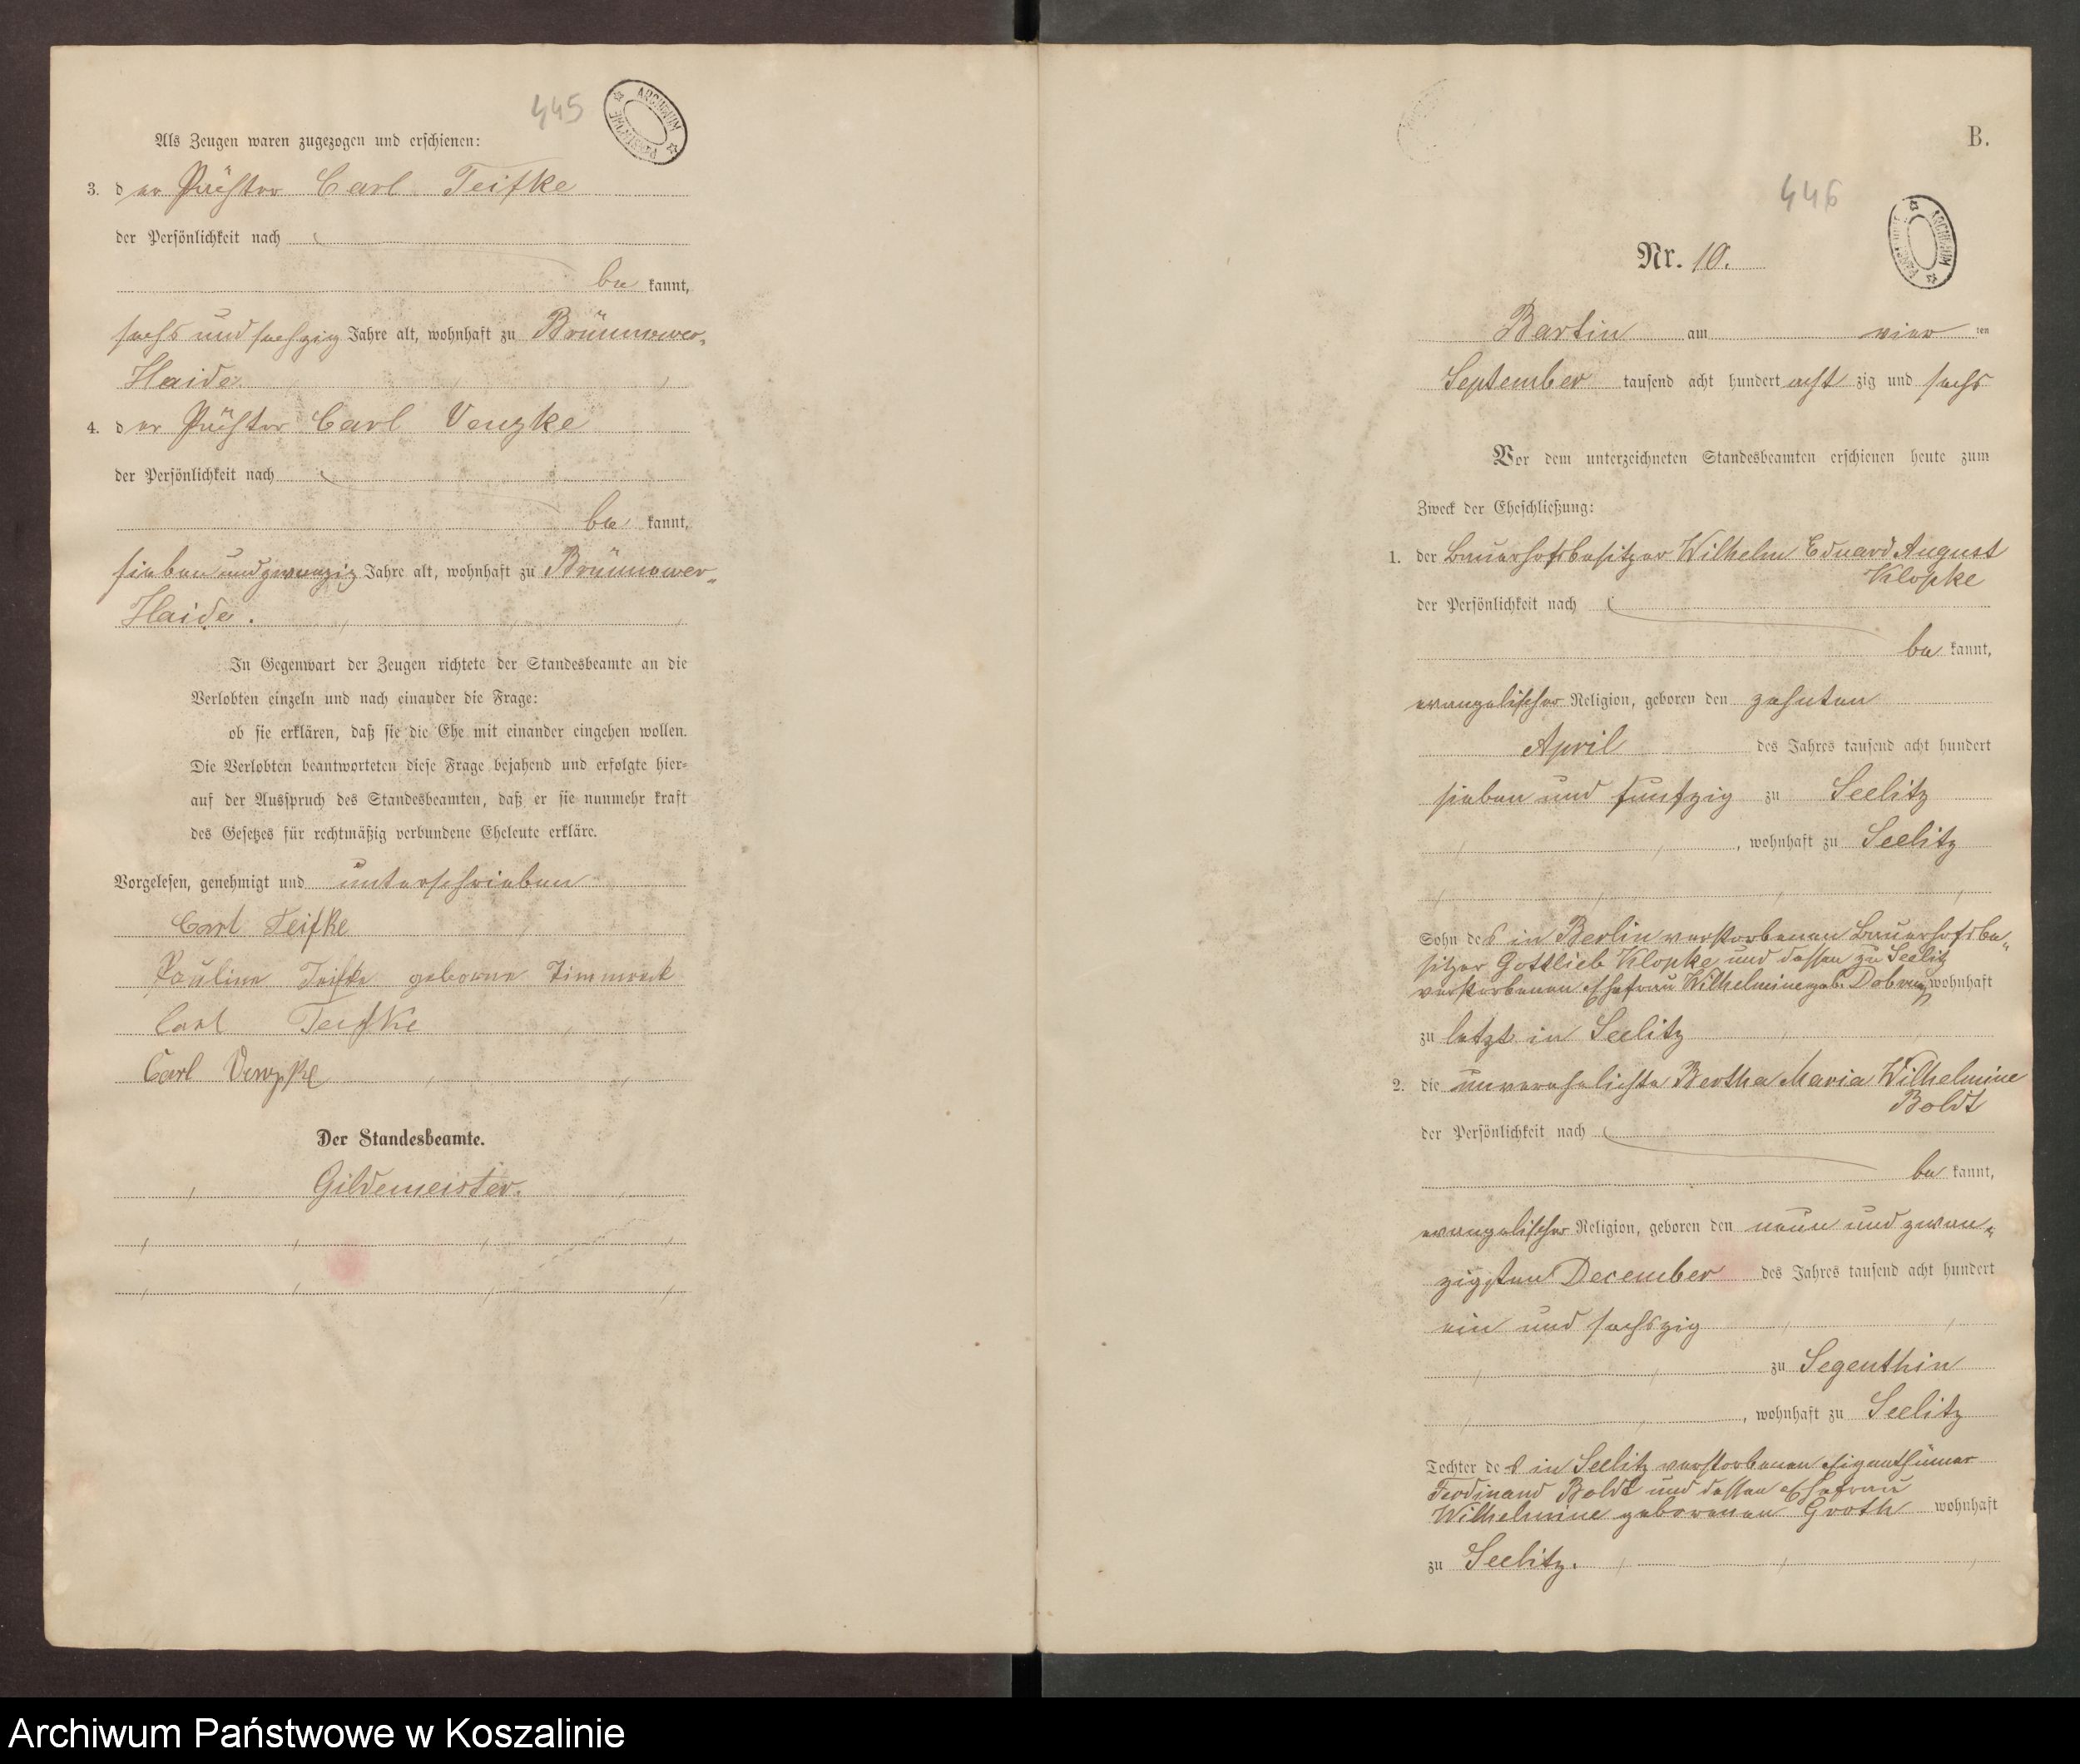 445
ARCHIWUM PAŃSTWOWE
Als Zeugen waren zugezogen und erschienen:
3. der Büdner Carl Teifke
der Persönlichkeit nach
be kannt,
sechs und sechzig Jahre alt, wohnhaft zu Brünnower-
Haide.
4. der Büdner Carl Venzke
der Persönlichkeit nach
be kannt,
sieben und zwanzig Jahre alt, wohnhaft zu Brünnower-
Haide.
In Gegenwart der Zeugen richtete der Standesbeamte an die
Verlobten einzeln und nach einander die Frage:
ob sie erklären, daß sie die Ehe mit einander eingehen wollen.
Die Verlobten beantworteten diese Frage bejahend und erfolgte hier-
auf der Ausspruch des Standesbeamten, daß er sie nunmehr kraft
des Gesetzes für rechtmäßig verbundene Eheleute erkläre.
Vorgelesen, genehmigt und unterschrieben
Carl Teifke
Pauline Teifke geborne
Carl Teifke
Carl Venzke
Der Standesbeamte.
Gildemeister.
B.
446
ARCHIWUM PAŃSTWOWE
Nr. 10.
Bartin am vier ten
September tausend acht hundert acht zig und sechs
Vor dem unterzeichneten Standesbeamten erschienen heute zum
Zweck der Eheschließung:
1. der Bauerhofsbesitzer Wilhelm Eduard August
Klopke
der Persönlichkeit nach
be kannt,
evangelischer Religion, geboren den zehnten
April des Jahres tausend acht hundert
sieben und funfzig zu Seelitz
, wohnhaft zu Seelitz
Sohn des in Berlin verstorbenen Bauerhofsbe-
sitzer Gottlieb Klopke und dessen zu Seelitz
verstorbenen Ehefrau Wilhelmine geb. wohnhaft
zu letzt in Seelitz
2. die unverehelichte Bertha Maria Wilhelmine
Boldt
der Persönlichkeit nach
be kannt,
evangelischer Religion, geboren den neun und zwan-
zigsten December des Jahres tausend acht hundert
ein und sechszig
zu Segenthin
, wohnhaft zu Seelitz
Tochter des in Seelitz verstorbenen Eigenthümer
Ferdinand Boldt und dessen Ehefrau
Wilhelmine geborenen Groth wohnhaft
zu Seelitz.
Archiwum Państwowe w Koszalinie